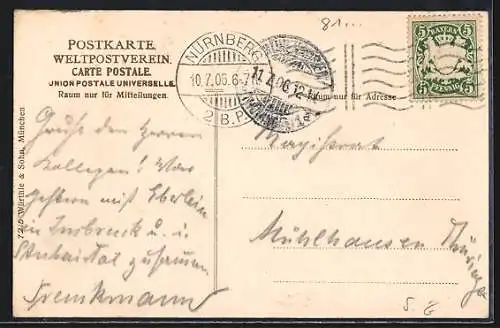 81...
POSTKARTE
WELTPOSTVEREIN.
CARTE POSTALE.
UNION POSTALE UNIVERSELLE.
Raum nur für Mitteilungen.
NÜRNBERG
10.7.06.6-7
2 B.P.
11.7.06.12-1
BAYERN
5 5
PFENNIG
Raum nur für Adresse
7275 Würthle & Sohn, München
Grüße den Herren
Kollegen! War
gestern mit Eberlein
in Innsbruck u. i.
Stubaital zusammen
Magistrat
Mühlhausen Thüringen